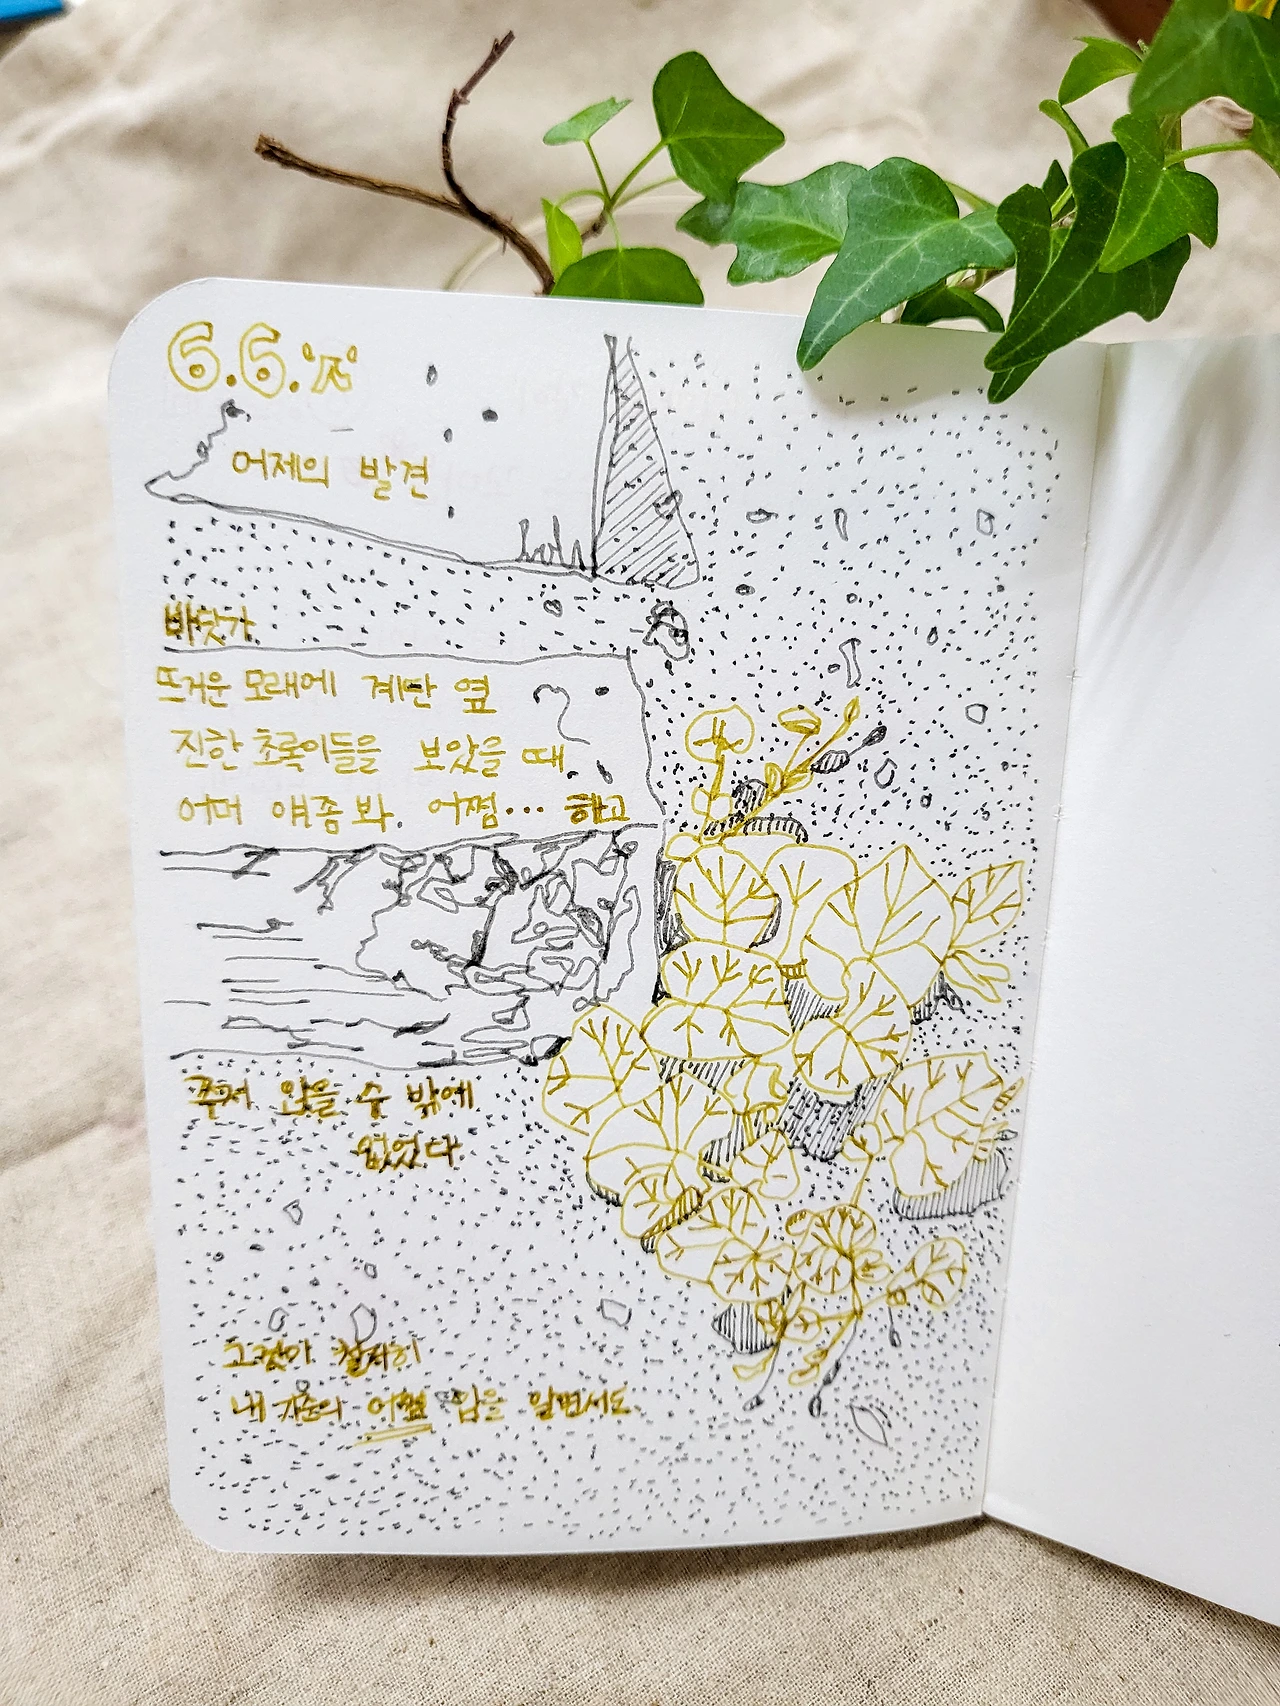 6.6.'木'
어제의 발견
바닷가
뜨거운 모래에 계단 옆
진한 초록이들을 보았을 때,
어머 얘좀 봐. 어쩜... 하고
주저 앉을 수 밖에
없었다
그것이 철저히
내 기준의 어쩜 임을 알면서도